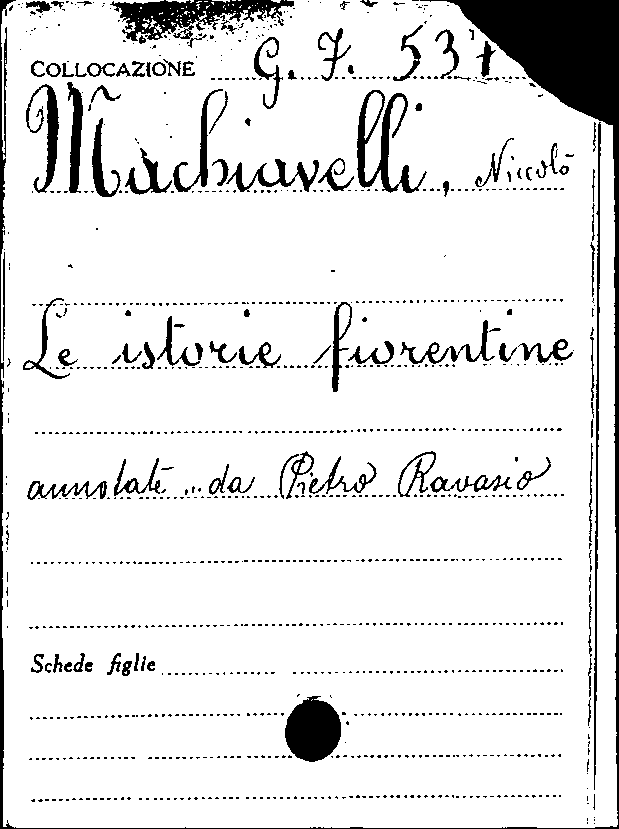 COLLOCAZIONE G. 7. 537
Machiavelli, Niccolò
Le istorie fiorentine
annotate ... da Pietro Ravasio
Schede figlie